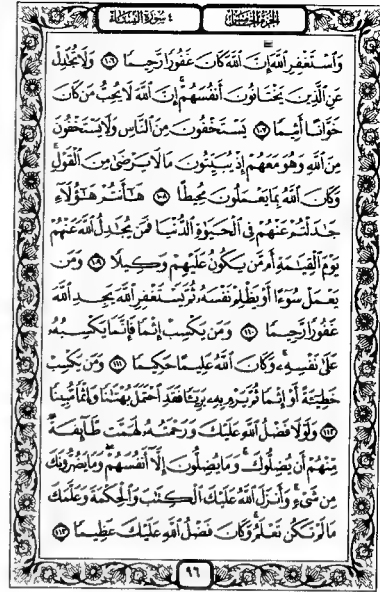 الجزء الخامس
٤ سورة النساء
وَٱسۡتَغۡفِرِ ٱللَّهَۖ إِنَّ ٱللَّهَ كَانَ غَفُورٗا رَّحِيمٗا ١٠٦ وَلَا تُجَٰدِلۡ
عَنِ ٱلَّذِينَ يَخۡتَانُونَ أَنفُسَهُمۡۚ إِنَّ ٱللَّهَ لَا يُحِبُّ مَن كَانَ
خَوَّانًا أَثِيمٗا ١٠٧ يَسۡتَخۡفُونَ مِنَ ٱلنَّاسِ وَلَا يَسۡتَخۡفُونَ
مِنَ ٱللَّهِ وَهُوَ مَعَهُمۡ إِذۡ يُبَيِّتُونَ مَا لَا يَرۡضَىٰ مِنَ ٱلۡقَوۡلِۚ
وَكَانَ ٱللَّهُ بِمَا يَعۡمَلُونَ مُحِيطًا ١٠٨ هَٰٓأَنتُمۡ هَٰٓؤُلَآءِ
جَٰدَلۡتُمۡ عَنۡهُمۡ فِي ٱلۡحَيَوٰةِ ٱلدُّنۡيَا فَمَن يُجَٰدِلُ ٱللَّهَ عَنۡهُمۡ
يَوۡمَ ٱلۡقِيَٰمَةِ أَم مَّن يَكُونُ عَلَيۡهِمۡ وَكِيلٗا ١٠٩ وَمَن
يَعۡمَلۡ سُوٓءًا أَوۡ يَظۡلِمۡ نَفۡسَهُۥ ثُمَّ يَسۡتَغۡفِرِ ٱللَّهَ يَجِدِ ٱللَّهَ
غَفُورٗا رَّحِيمٗا ١١٠ وَمَن يَكۡسِبۡ إِثۡمٗا فَإِنَّمَا يَكۡسِبُهُۥ
عَلَىٰ نَفۡسِهِۦۚ وَكَانَ ٱللَّهُ عَلِيمًا حَكِيمٗا ١١١ وَمَن يَكۡسِبۡ
خَطِيٓـَٔةً أَوۡ إِثۡمٗا ثُمَّ يَرۡمِ بِهِۦ بَرِيٓـٔٗا فَقَدِ ٱحۡتَمَلَ بُهۡتَٰنٗا وَإِثۡمٗا مُّبِينٗا
١١٢ وَلَوۡلَا فَضۡلُ ٱللَّهِ عَلَيۡكَ وَرَحۡمَتُهُۥ لَهَمَّت طَّآئِفَةٞ
مِّنۡهُمۡ أَن يُضِلُّوكَ وَمَا يُضِلُّونَ إِلَّآ أَنفُسَهُمۡۖ وَمَا يَضُرُّونَكَ
مِن شَيۡءٖۚ وَأَنزَلَ ٱللَّهُ عَلَيۡكَ ٱلۡكِتَٰبَ وَٱلۡحِكۡمَةَ وَعَلَّمَكَ
مَا لَمۡ تَكُن تَعۡلَمُۚ وَكَانَ فَضۡلُ ٱللَّهِ عَلَيۡكَ عَظِيمٗا ١١٣
٩٦